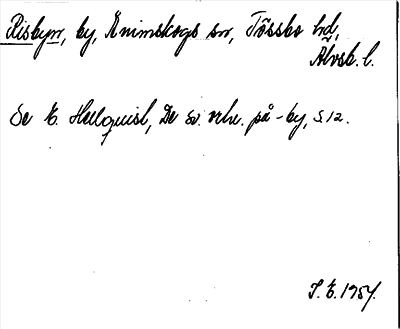 Risbyn, by, Ånimskogs sn, Tössbo hd,
Älvsb. l.
Se E. Hellquist, De sv. ortn. på -by, s. 12.
S. E. 1957.